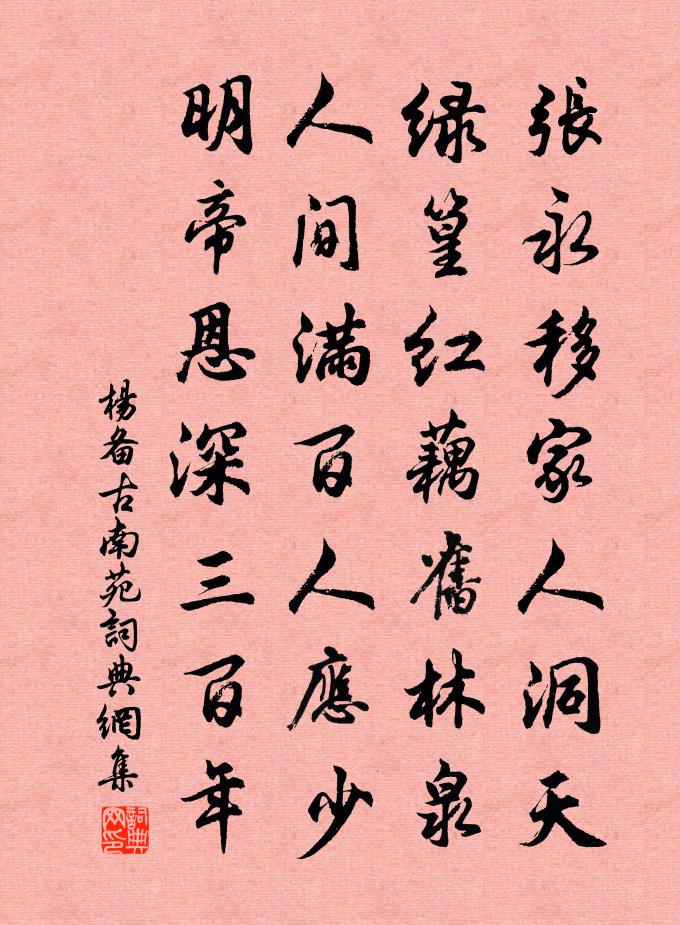 張永移家人洞天
緑篁红藕舊林泉
人间满百人應少
明帝恩深三百年
楊备古南苑詞典網集
詞典网印